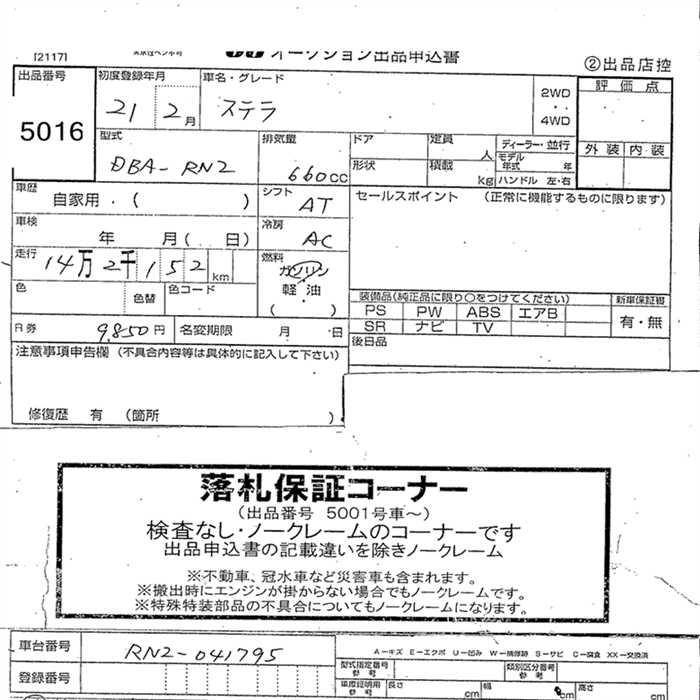 [2117] オークション出品申込書 ②出品店控
出品番号 5016
初度登録年月 21 2月
車名・グレード ステラ
2WD
・・
4WD
評価点
外装 内装
型式 DBA-RN2
排気量 660cc
ドア
形状
定員 人
積載 kg
ディーラー・並行
モデル年式 年
ハンドル 左・右
車歴 自家用.( )
シフト AT
セールスポイント (正常に機能するものに限ります)
車検 年 月( 日)
冷房 AC
走行 14万2千152km
燃料 ガソリン
軽・油
( )
色 色替 色コード
装備品(純正品に限り〇をつけてください) 新車保証書
PS PW ABS エアB
SR ナビ TV
有・無
R券 9,850円 名変期限 月 日
後日品
注意事項申告欄(不具合内容等は具体的に記入して下さい)
修復歴 有 (箇所 )
落札保証コーナー
(出品番号 5001号車〜)
検査なし・ノークレームのコーナーです
出品申込書の記載違いを除きノークレーム
※不動車、冠水車など災害車も含まれます。
※搬出時にエンジンが掛からない場合でもノークレームです。
※特殊特装部品の不具合についてもノークレームになります。
車台番号 RN2-041795
A-キズ E-エクボ U-凹み W-補修跡 S-サビ C-腐食 XX-交換済
登録番号
型式指定番号 参考
類別区分番号 参考
車庫証明用 参考 長さ cm 幅 cm 高さ cm